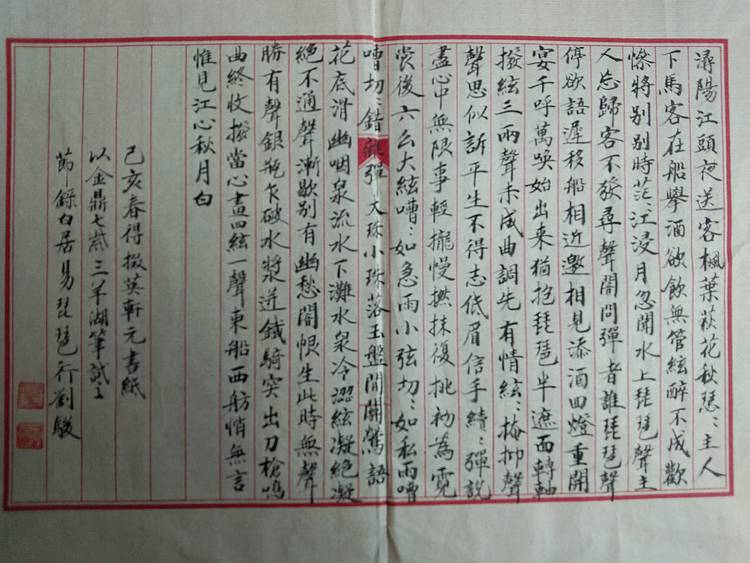 潯陽江頭夜送客楓葉荻花秋瑟〻主人
下馬客在船舉酒欲飲無管絃醉不成歡
慘將別別時茫〻江浸月忽聞水上琵琶聲主
人忘歸客不發尋聲闇問彈者誰琵琶聲
停欲語遲移船相近邀相見添酒回燈重開
宴千呼萬喚始出来猶抱琵琶半遮面轉軸
撥絃三兩聲未成曲調先有情絃〻掩抑聲
聲思似訴平生不得志低眉信手續〻彈說
盡心中無限事輕攏慢撚抹復挑初為霓
裳後六么大絃嘈〻如急雨小弦切〻如私雨嘈
嘈切〻錯雜彈大珠小珠落玉盤間關鶯語
花底滑幽咽泉流水下灘水泉冷澀絃凝絕凝
絕不通聲漸歇別有幽愁闇恨生此時無聲
勝有聲銀瓶乍破水漿迸鐵騎突出刀槍鳴
曲終收撥當心畫四絃一聲東船西舫悄無言
惟見江心秋月白
己亥春得掇英軒元書紙
以金鼎七紫三羊湖筆試之
節錄白居易琵琶行劉駿